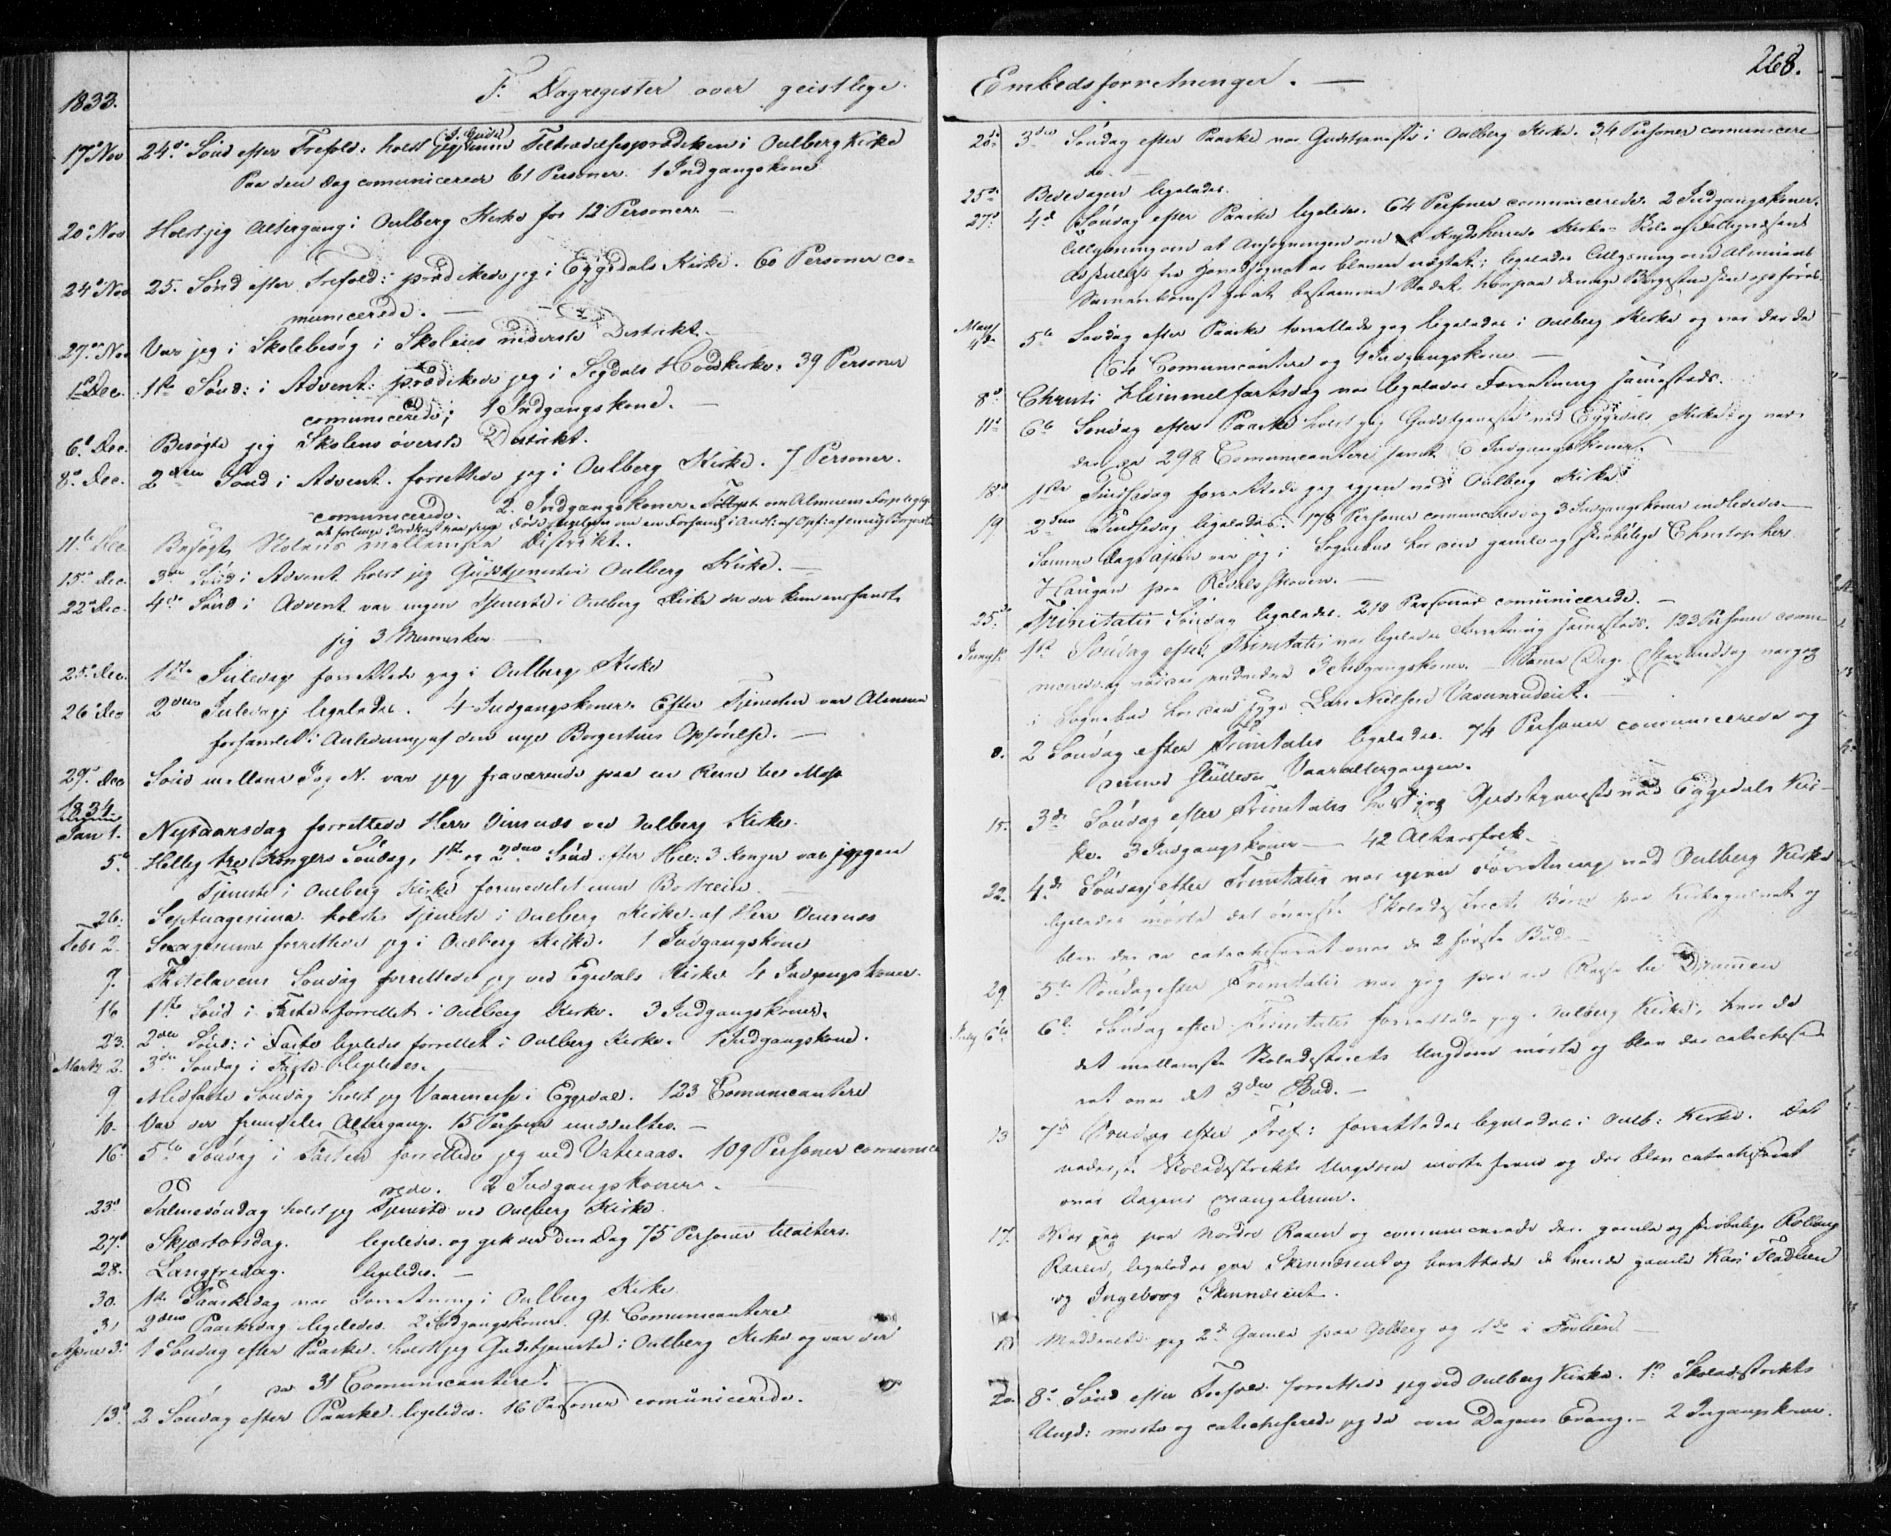 1833.
F. Dagregister over geistlige
17de Nov
24de Sönd efter Trefold: holdt jeg min Tiltrædelsesprædiken i Oulberg Kirke
Paa den Dag comunicerede 61 Personer. 1 Indgangskone
20de Nov
Holdt jeg Altergang i Oulberg Kirke for 12 Personer. —
24de Nov
25. Sönd efter Trefold: prædikede jeg i Eggedals Kirke. 60 Personer co=
municerede. —
27de Nov
Var jeg i Skolebesög i Skolens nederste Distrikt. —
1ste Dec.
1ste Sönd: i Advent: prædikede jeg i Sigdals Hovedkirke. 39 Personer
comunicerede; 1 Indgangskone. —
6te Dec.
Besögte jeg Skolens överste Distrikt.
8de Dec.
2den Sönd i Advent. forrettede jeg i Oulberg Kirke. 7 Personer.
comunicerede. 2 Indgangskoner.
11te Dec
Besögte Skolens mellemste Distrikt.
15de Dec.
3die Sönd i Advent holdt jeg Gudstjeneste i Oulberg Kirke. —
22de Dec.
4de Sönd i Advent var ingen Tjeneste i Oulberg Kirke da der kun
jeg 3 Mennesker —
25de Dec.
1ste Juledag forrettede jeg i Oulberg Kirke
26 Dec
2den Juledag ligeledes. 4 Indgangskoner. Efter Tjenesten var Almuen
forsamlet i Anledning af den nye Borgestues Opförelse. —
29de Dec
Sönd mellem J og N. var jeg fraværende paa en Reise til Moss
1834.
Jan 1.
Nytaarsdag forrettede Herr Vinsnes ved Oulberg Kirke.
5te
Hellig tre Kongers Söndag, 1ste og 2den Sönd. efter Hel: 3 Konger var ingen
Tjeneste i Oulberg Kirke formedelst
26.
Septuagesima holdtes Tjeneste i Oulberg Kirke af Herr Vinsnes
Febr 2.
Sexagesima forrettede jeg i Oulberg Kirke. 1 Indgangskone
9.
Fastelavens Söndag forrettede jeg ved Egedals Kirke 4 Indgangskoner.
16
1ste Sönd i Faste forrettet i Oulberg Kirke. 3 Indgangskoner.
23.
2den Sönd: i Faste ligeledes forrettet i Oulberg Kirke. 1 Indgangskone.
Marts 2.
3die Söndag i Faste ligeledes.
9
Midfaste Söndag holdt jeg Vaarmesse i Eggedal. 123 Comunicantere
10.
Var der fremdeles Altergang. 15 Personer —
16de
5te Söndag i Fasten forrettede jeg ved Vatnaas. 109 Personer comunice
rede. 2 Indgangskoner. —
23de
Palmesöndag holdt jeg Tjeneste ved Oulberg Kirke.
27de
Skjærtorsdag. ligeledes. og gik den Dag 75 Personer til alters.
28.
Langfredag. ligeledes. —
30.
1ste Paaskedag var Forretning i Oulberg Kirke
31
2den Paaskedag ligeledes. 2 Indgangskoner. 91 Comunicantere
April
1 Söndag efter Paaske. holdt jeg Gudstjeneste i Oulberg Kirke og var der
da 31 Comunicantere. —
13de
2 Söndag efter Paaske ligeledes. 16 Personer comunicerede.
Embedsforretninger. —
268.
20de
3die Söndag efter Paaske var Gudstjeneste i Oulberg Kirke. 34 Personer comunicere
de. —
25de
Bededagen ligeledes.
27de
4de Söndag efter Paaske ligeledes. 64 Personer comunicerede. 2 Indgangskoner.
bleven nægtet; ligeledes Tillysning om Almuens
Sammenkomst for at bestemme Stedet, hvorpaa den nye Borgestue skal opföres
May 4de
5te Söndag efter Paaske forrettede jeg ligeledes i Oulberg Kirke og var der da
64 Comunicantere og 1 Indgangskone —
8de
Christi Himmelfartsdag var ligeledes Forretning samesteds.
11te
6te Söndag efter Paaske holdt jeg Gudstjeneste ved Eggedals Kirke og var
der da 298 Comunicantere samt 6 Indgangskoner.
18de
1ste Pindsedag forrettede jeg igjen ved Oulberg Kirke
19
2den Pindsedag ligeledes. 178 Personer comunicerede og 3 Indgangskoner indlededes. —
Samme Dags Aften var jeg i Sognebud hos den gamle og skröbelige Christopher
Haugen paa —
25de
Trinitatis Söndag ligeledes. 210 Personer comunicerede. —
Juny 1ste
1ste Söndag efter Trinitatis var ligeledes Forretning samesteds. 122 Personer comu
nicerede og 3 Indgangskoner. — Same Dag var jeg
i Sognebud hos den syge Lars Nielsen —
8.
2 Söndag efter Trinitatis ligeledes. 74 Personer comunicerede og
dermed sluttedes Vaaraltergangen.
15.
3die Söndag efter Trinitatis holdt jeg Gudstjeneste ved Eggedals Kir=
ke. 3 Indgangskoner — 42 Altersfolk.
22.
4de Söndag efter Trinitatis var igjen Forretning ved Oulberg Kirke
ligeledes mödte det överste Skoledistricts Börn paa Kirkegulvet og
blev der da catechiseret over de 2 förste Bud. —
29.
5te Söndag efter Trinitatis var jeg paa en Reise til Drammen
July 6te
6te Söndag efter Trinitatis forrettede jeg i Oulberg Kirke, hvor da
det mellemste Skoledistricts Ungdom mödte og blev der catechise
ret over det 3die Bud. —
13
7de Söndag efter Tref: forrettedes ligeledes i Oulb: Kirke. Det
nederste Skoledistrikts Ungdom mödte frem og der blev catechiseret
over Dagens Evangelium.
17.
Var jeg paa Nordre Raaen og comunicerede den gamle og skröbelige
Raaen, ligeledes paa Skinneseiet og berettede de tvende gamle Kari Fladmoen
og Ingeborg Skinneseiet.
18
jeg 2de Gamle paa Solberg og 1de i
20.
8de Sönd efter Trefold. forrettede jeg ved Oulberg Kirke. 1ste Skoledistrikts
Ungd: mödte og catechiserede jeg da over Dagens Evang. — 2 Ingangskoner.